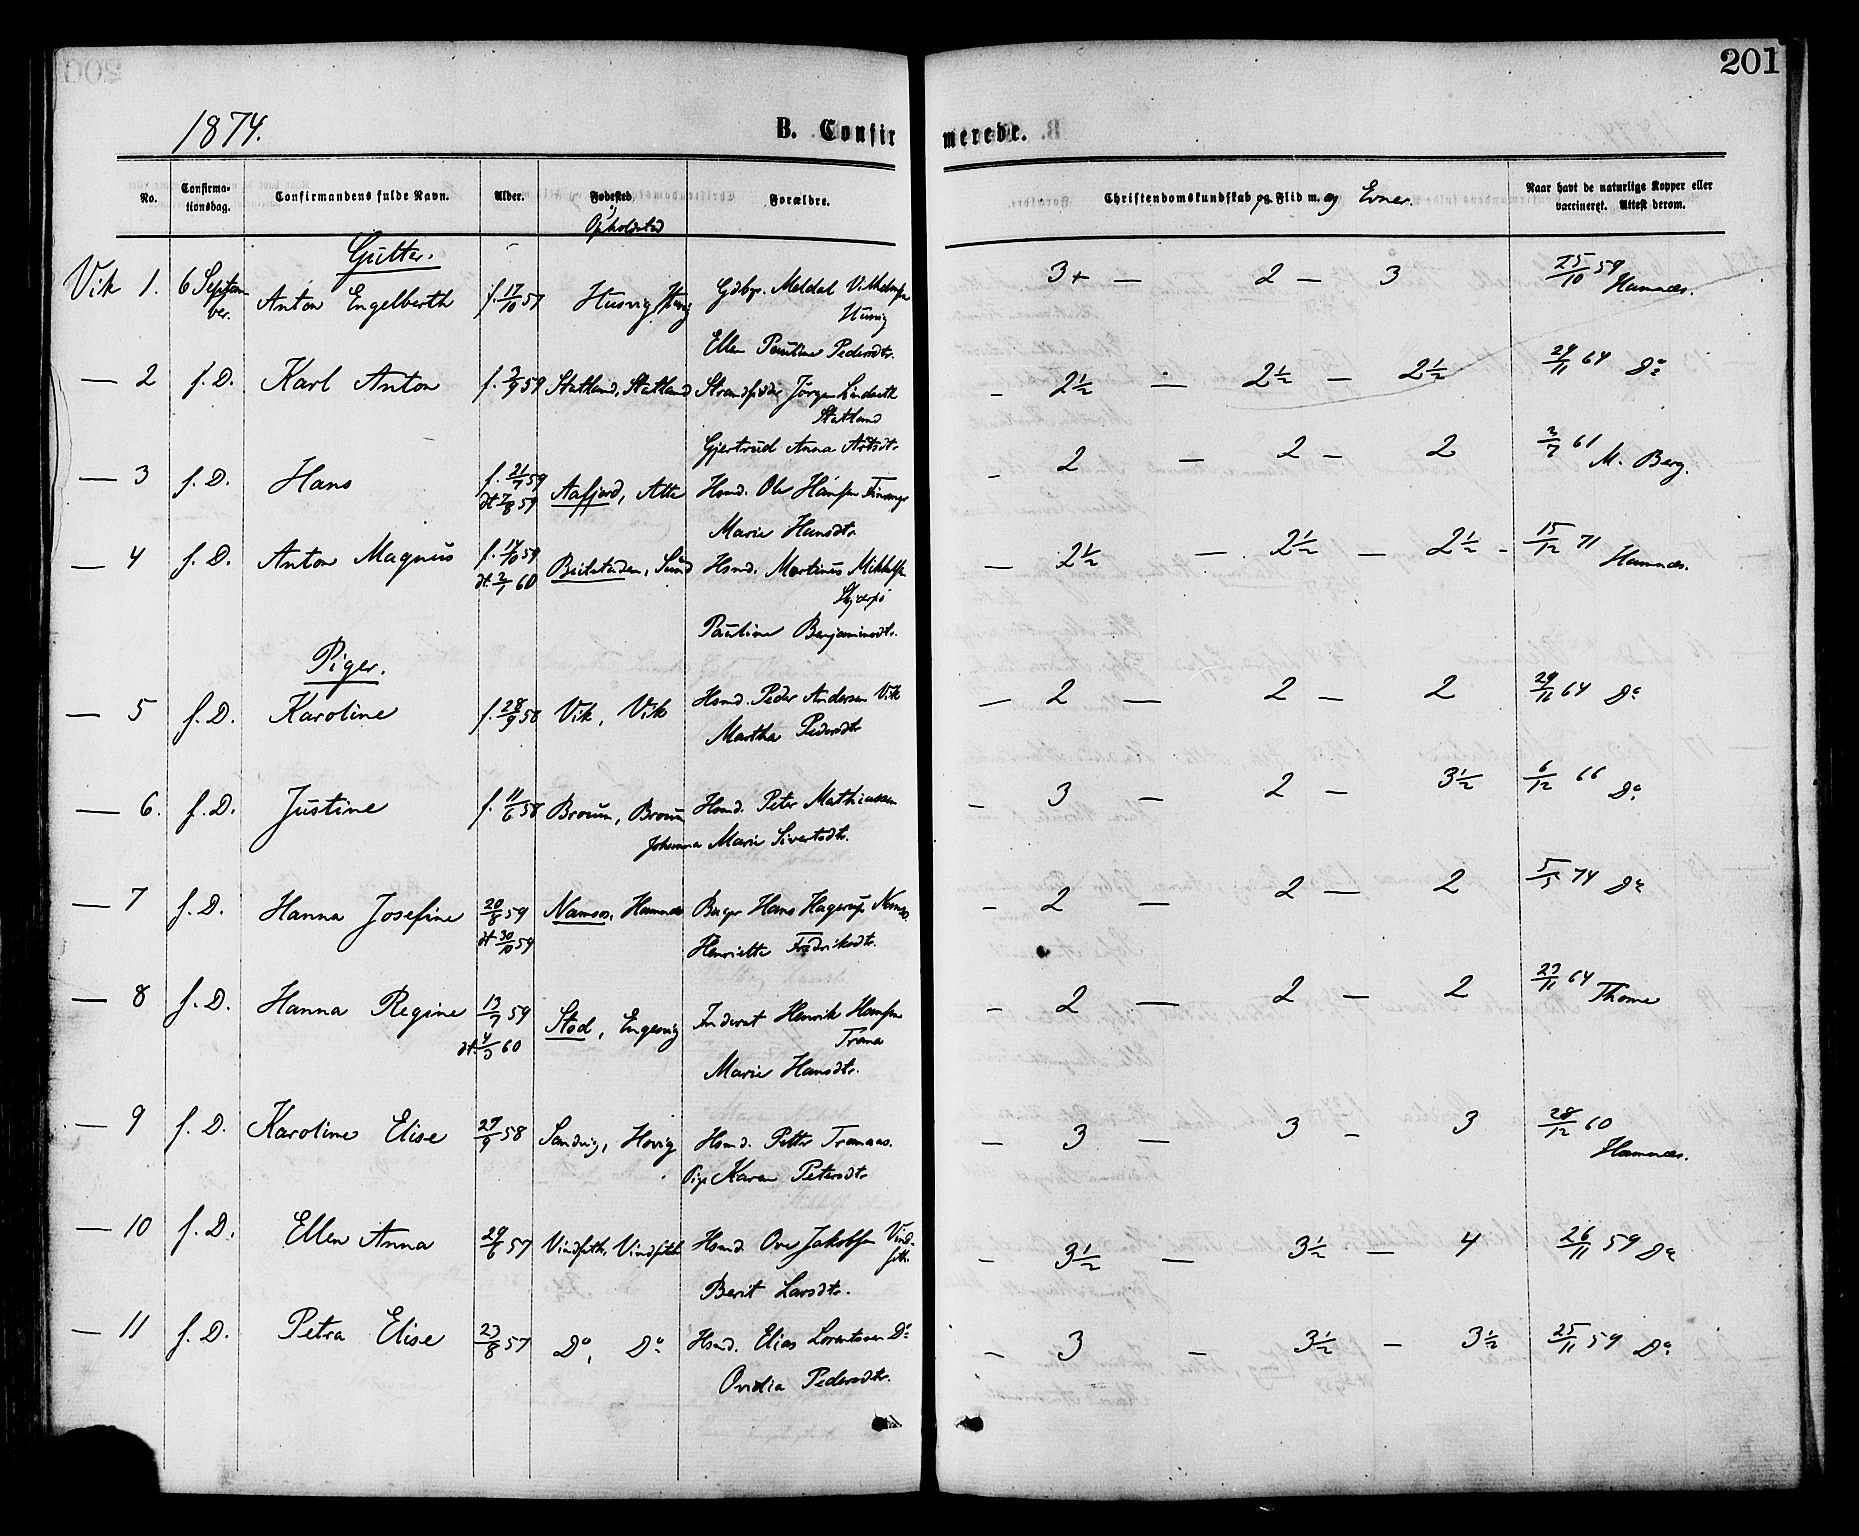 201
1874.
B. Confirmerede.
No.
Confirma-
tionsdag.
Confirmandens fulde Navn.
Alder.
Fødested
Opholdsted
Forældre.
Christendomskundskab og Flid m. og Evner.
Naar havt de naturlige Kopper eller
vaccineret. Attest derom.
Gutter.
Vik 1. 6 Septem
ber. Anton Engelberth f. 17/10 57 Husvig, Husvig Gdbgr. Meldal Vilhelmsen
Husvig
Ellen Pauline Pedersdtr. 3+ — 2 — 3 25/10 59
Hamnes.
— 2 f. D. Karl Anton f. 3/9 59 Statland, Statland Strandsidder Jørgen Linderth
Statland
Gjertrud Anna — 2½ — 2½ — 2½ 29/11 64 Do
— 3 f. D. Hans f. 21/7 59
dt 7/8 59 Aafjord, Atte Hsmd. Ole Hansen
Marie Hansdtr. — 2 — 2 — 2 3/7 61 M. Berg.
— 4 f. D. Anton Magnus f. 14/10 59
dt. 2/7 60 Beitstaden, Sund Hsmd. Martinus Mikkelsen
Pauline Benjaminsdtr. — 2½ — 2½ — 2½ - 15/12 71
Hamnes.
Piger.
— 5 f. D. Karoline f. 28/9 58 Vik, Vik Hsmd. Peder Andersen Vik
Martha Pedersdtr — 2 — 2 — 2 29/11 64 Do
— 6. f. D. Justine f. 11/6 58 Broum, Broum Hsmd. Peter Mathiasen
Johanna Marie Sivertsdtr. — 3 — 2 — 3½ 6/12 66 Do.
— 7 f. D. Hanna Josefine 20/8 59
dt 30/10 59 Namsos, Hamnes Hans Hagerup Namsos
Henriette Fredriksdtr. — 2 — 2 — 2 5/5 74 Do
— 8 f. D. Hanna Regine 13/7 59
dt. 4/3 60 Stod, Engesvig Inderst Henrik Hansen
Trana
Marie Hansdtr. — 2 — 2 — 2 23/11 64 Thome
— 9 f. D. Karoline Elise 27/9 58 Sandvig, Hovig Hsmd. Petter Tranaas.
Pige Karen Petersdtr — 3 — 3 — 3 28/12 60
Hamnes.
— 10 f. D. Ellen Anna 29/6 57 Vindseth, Vindseth Hsmd. Ove Jakobsen Vind-
seth.
Berit Larsdtr. — 3½ — 3½ — 4 26/11 59 Do
— 11 f. D. Petra Elise 23/8 57 Do, Do Hsmd. Elias Lorentsen Do
Ovidia Pedersdtr. — 3 — 3½ — 3½ 25/11 59 Do.